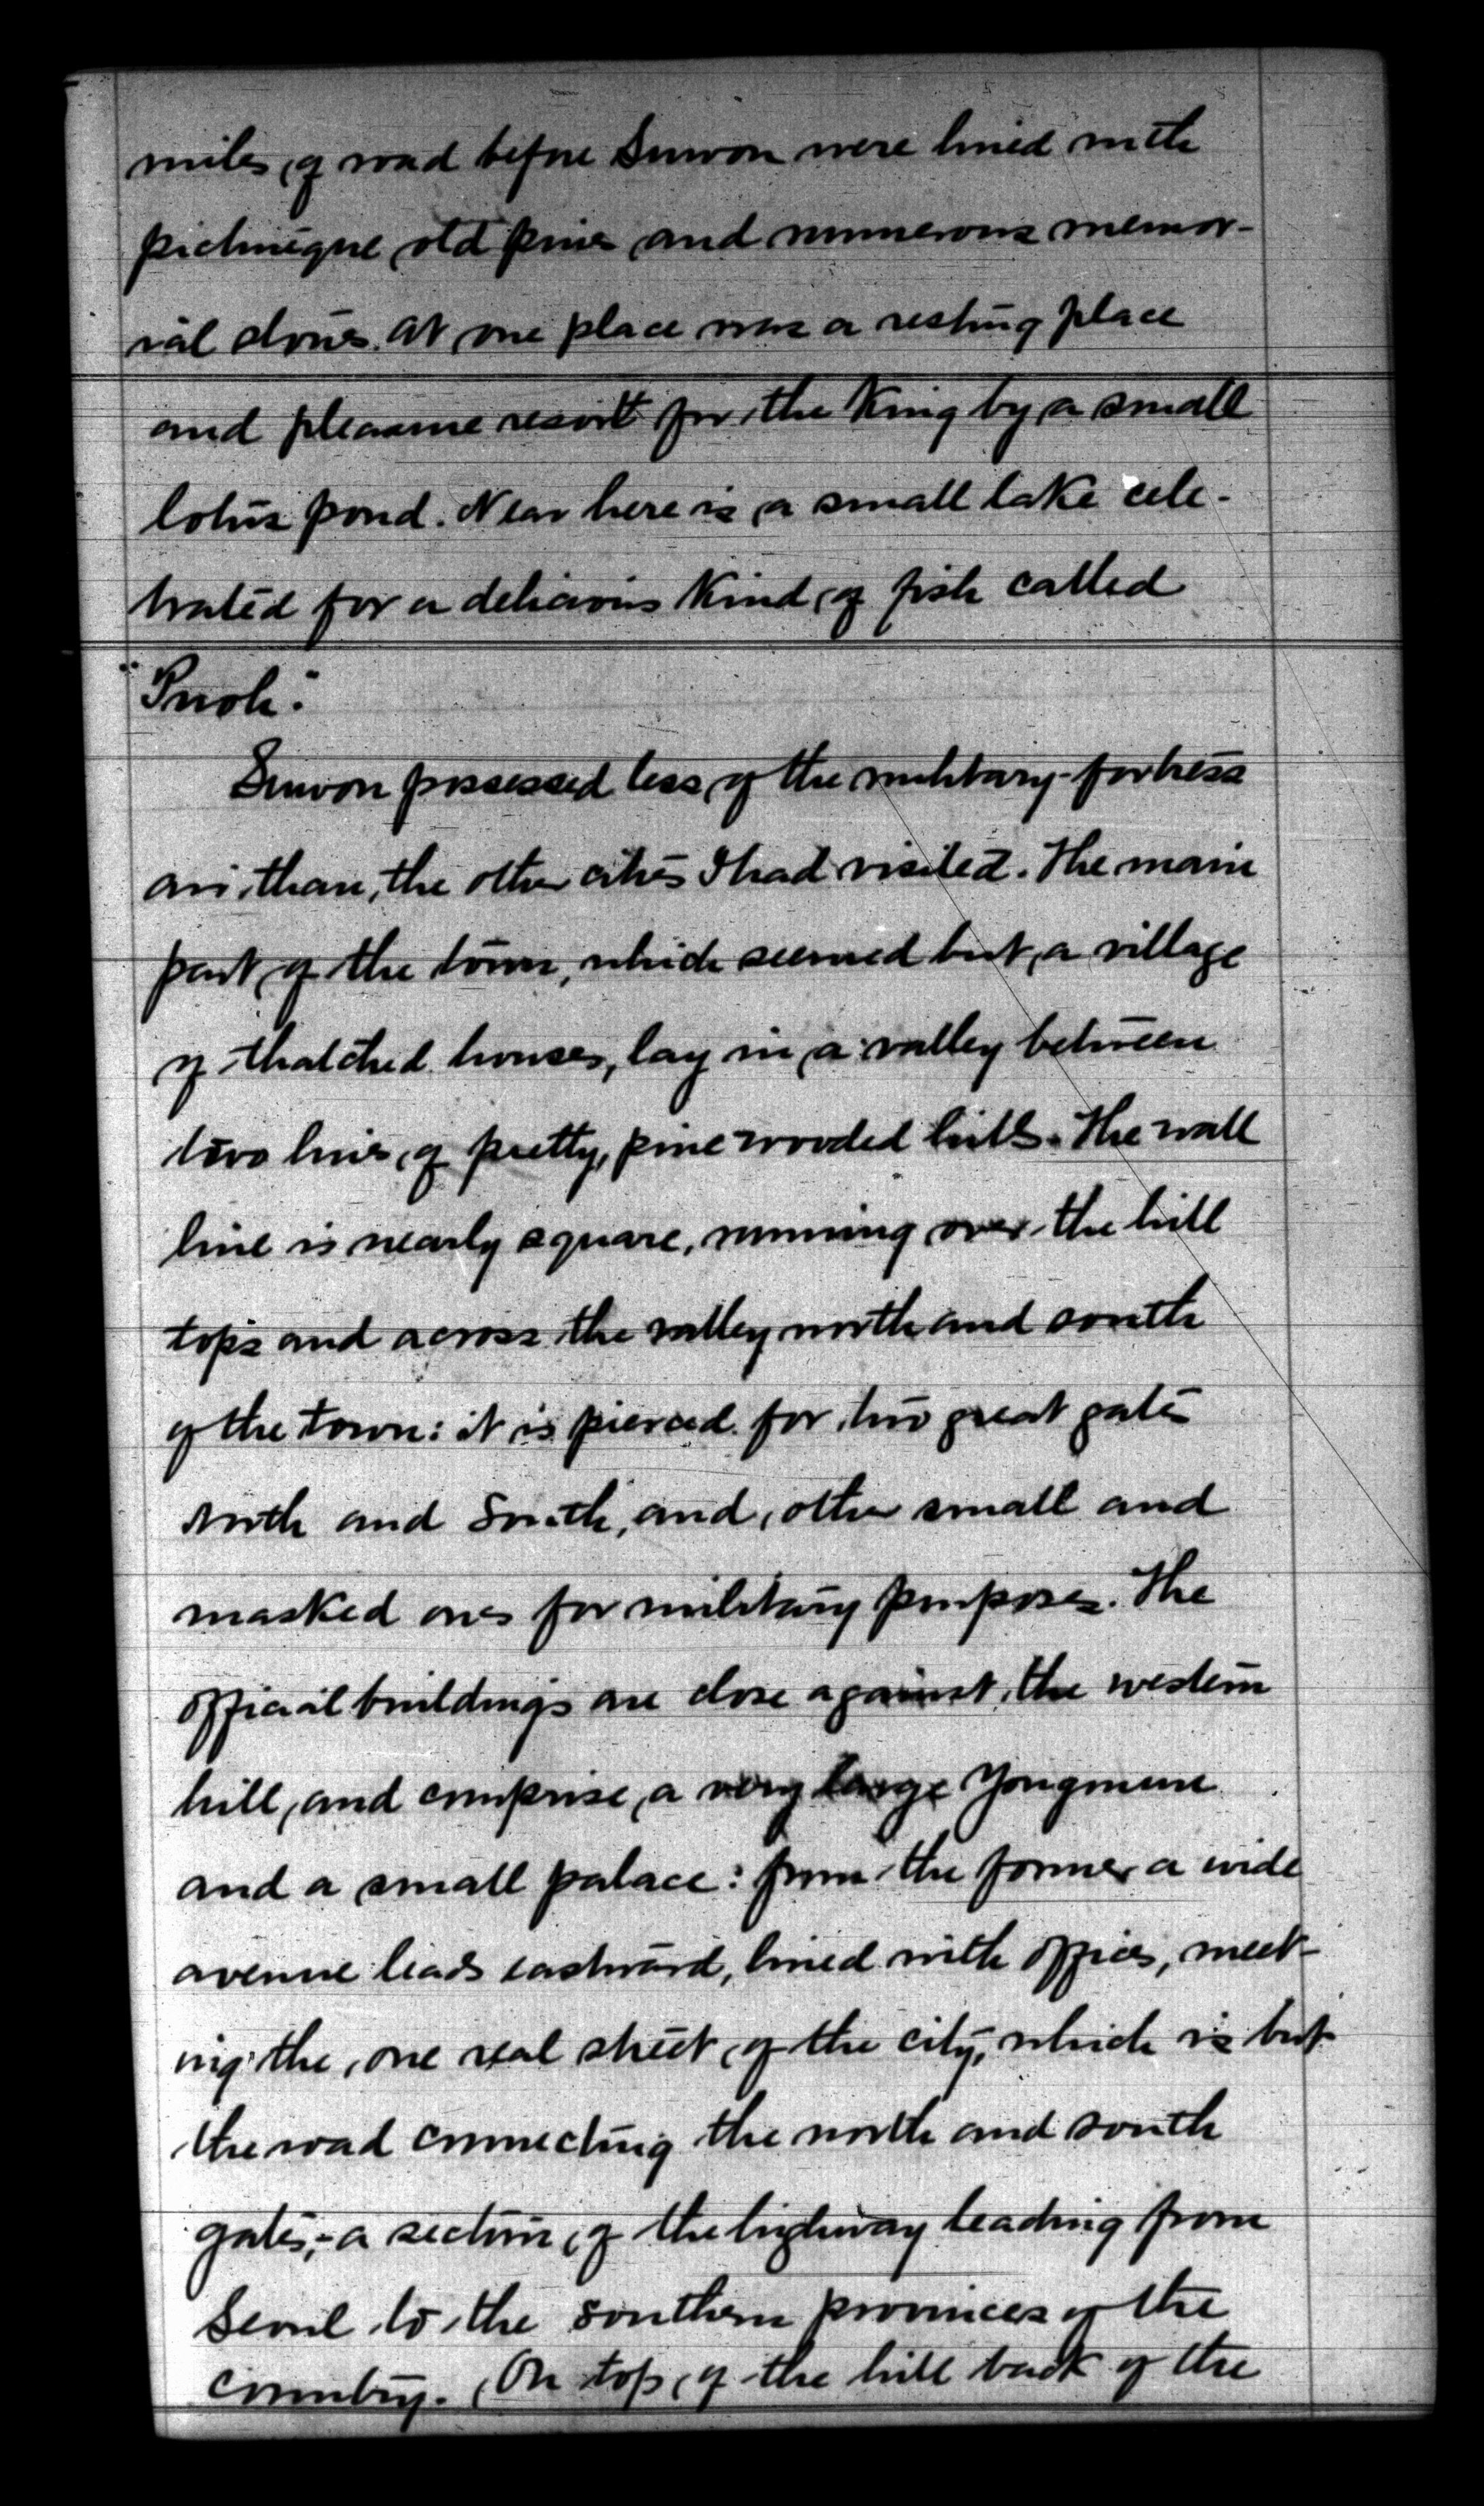 miles of road before Suwon were lined with
picturesque old pines and numerous memor-
ial stones. At one place was a resting place
and pleasure resort for the King by a small
lotus pond. Near here is a small lake cele-
brated for a delicious kind of fish called
"Puoh."
Suwon possessed less of the military-fortress
air than the other cities I had visited. The main
part of the town, which seemed but a village
of thatched houses, lay in a valley between
two lines of pretty, pine wooded hills. The wall
line is nearly square, running over the hill
tops and across the valley north and south
of the town: it is pierced for two great gates
North and South, and other small and
masked ones for military purposes. The
official buildings are close against the western
hill, and comprise a very large Yongmun
and a small palace: from the former a wide
avenue leads eastward, lined with offices, meet-
ing the one real street of the city, which is but
the road connecting the north and south
gates,- a section of the highway leading from
Seoul to the southern provinces of the
country. On top of the hill back of the